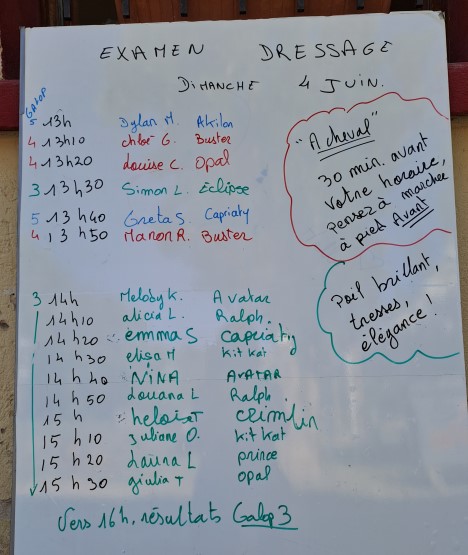 EXAMEN DRESSAGE
DIMANCHE 4 JUIN.
GALOP
5 13h Dylan M. Akilon
4 13h10 chloé G. Buster
4 13h20 Louise C. Opal
3 13h30 Simon L. Eclipse
5 13h40 Greta S. Capriaty
4 13h50 Manon R. Buster
"A cheval"
30 min. avant
votre horaire,
pensez à marcher
à pied Avant
3 14h Melody K. Avatar
14h10 alicia L. Ralph.
14h20 emma S capriaty
14h30 elisa M kit kat
14h40 NINA AVATAR
14h50 Louana L Ralph
15h heloise T
15h10 Juliane O. kit kat
15h20 Launa L prince
15h30 giulia T opal
Poil brillant,
tresses,
élégance !
Vers 16h. résultats Galop 3